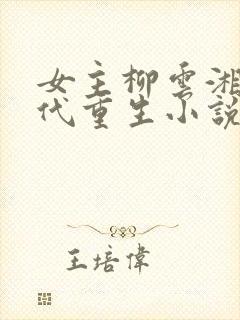 女主柳雲湘
代重生小說
王培偉